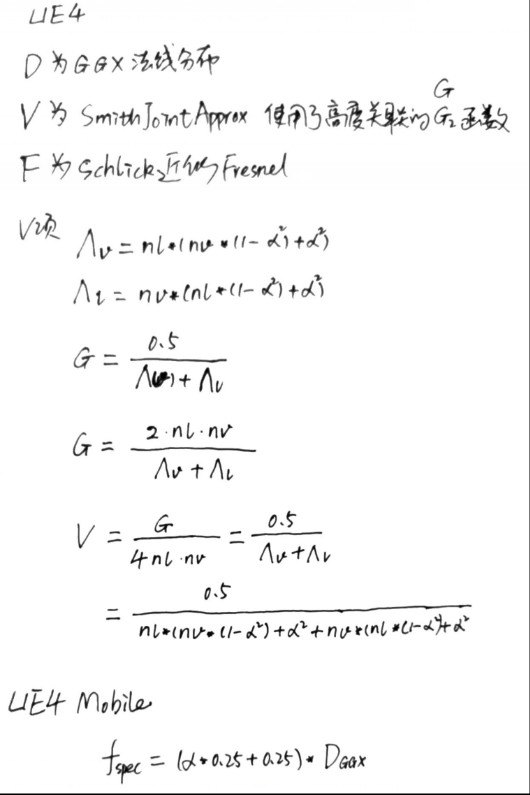 UE4
D为GGX法线分布
V为SmithJointApprox 使用了高度关联的G₂函数
G
F为Schlick近似Fresnel
V项 Λv = nl*(nv*(1-α²)+α²)
Λl = nv*(nl*(1-α²)+α²)
G = 0.5 / Λ(v)+Λv
G = 2·nl·nv / Λv+Λl
V = G / 4nl·nv = 0.5 / Λv+Λv
= 0.5 / nl*(nv*(1-α²)+α²+nv*(nl*(1-α²)+α²
UE4 Mobile
fspec = (α*0.25+0.25)*DGGX